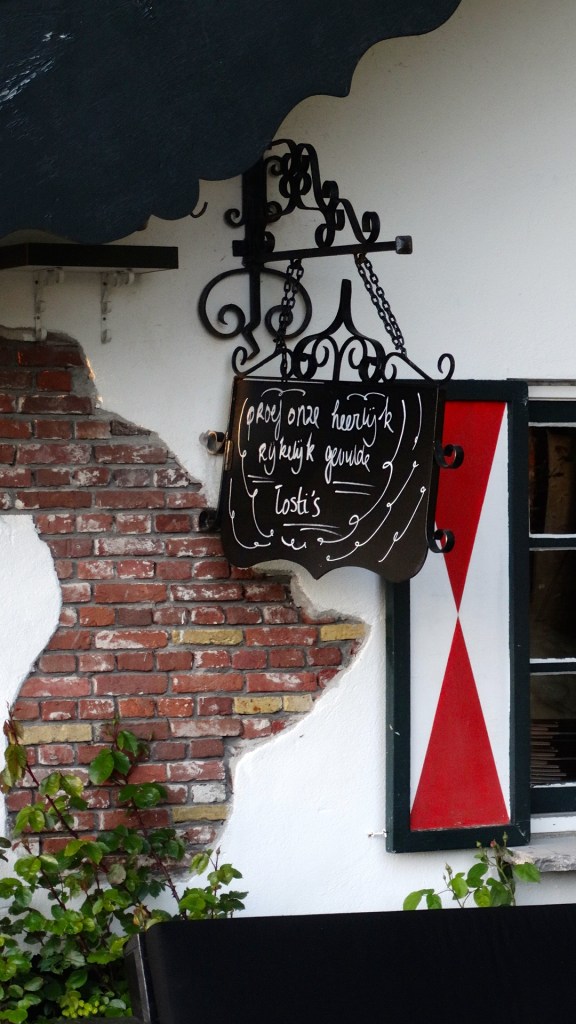 proef onze heerlijk
rijkelijk gevulde
Tosti's